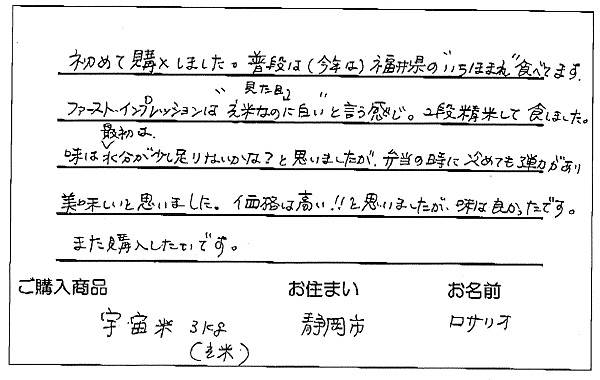 初めて購入しました。普段は(今年は)福井県の"いちほまれ"食べてます.
見た目
ファースト・インプレッションは"玄米なのに白い"と言う感じ。2段精米して食しました。
最初は、
味は水分が少し足りないかな?と思いましたが、弁当の時に冷めても弾力があり
美味しいと思いました。価格は高い!!と思いましたが、味は良かったです。
また購入したいです。
ご購入商品 お住まい お名前
宇宙米 3kg 静岡市 ロサリオ
(玄米)